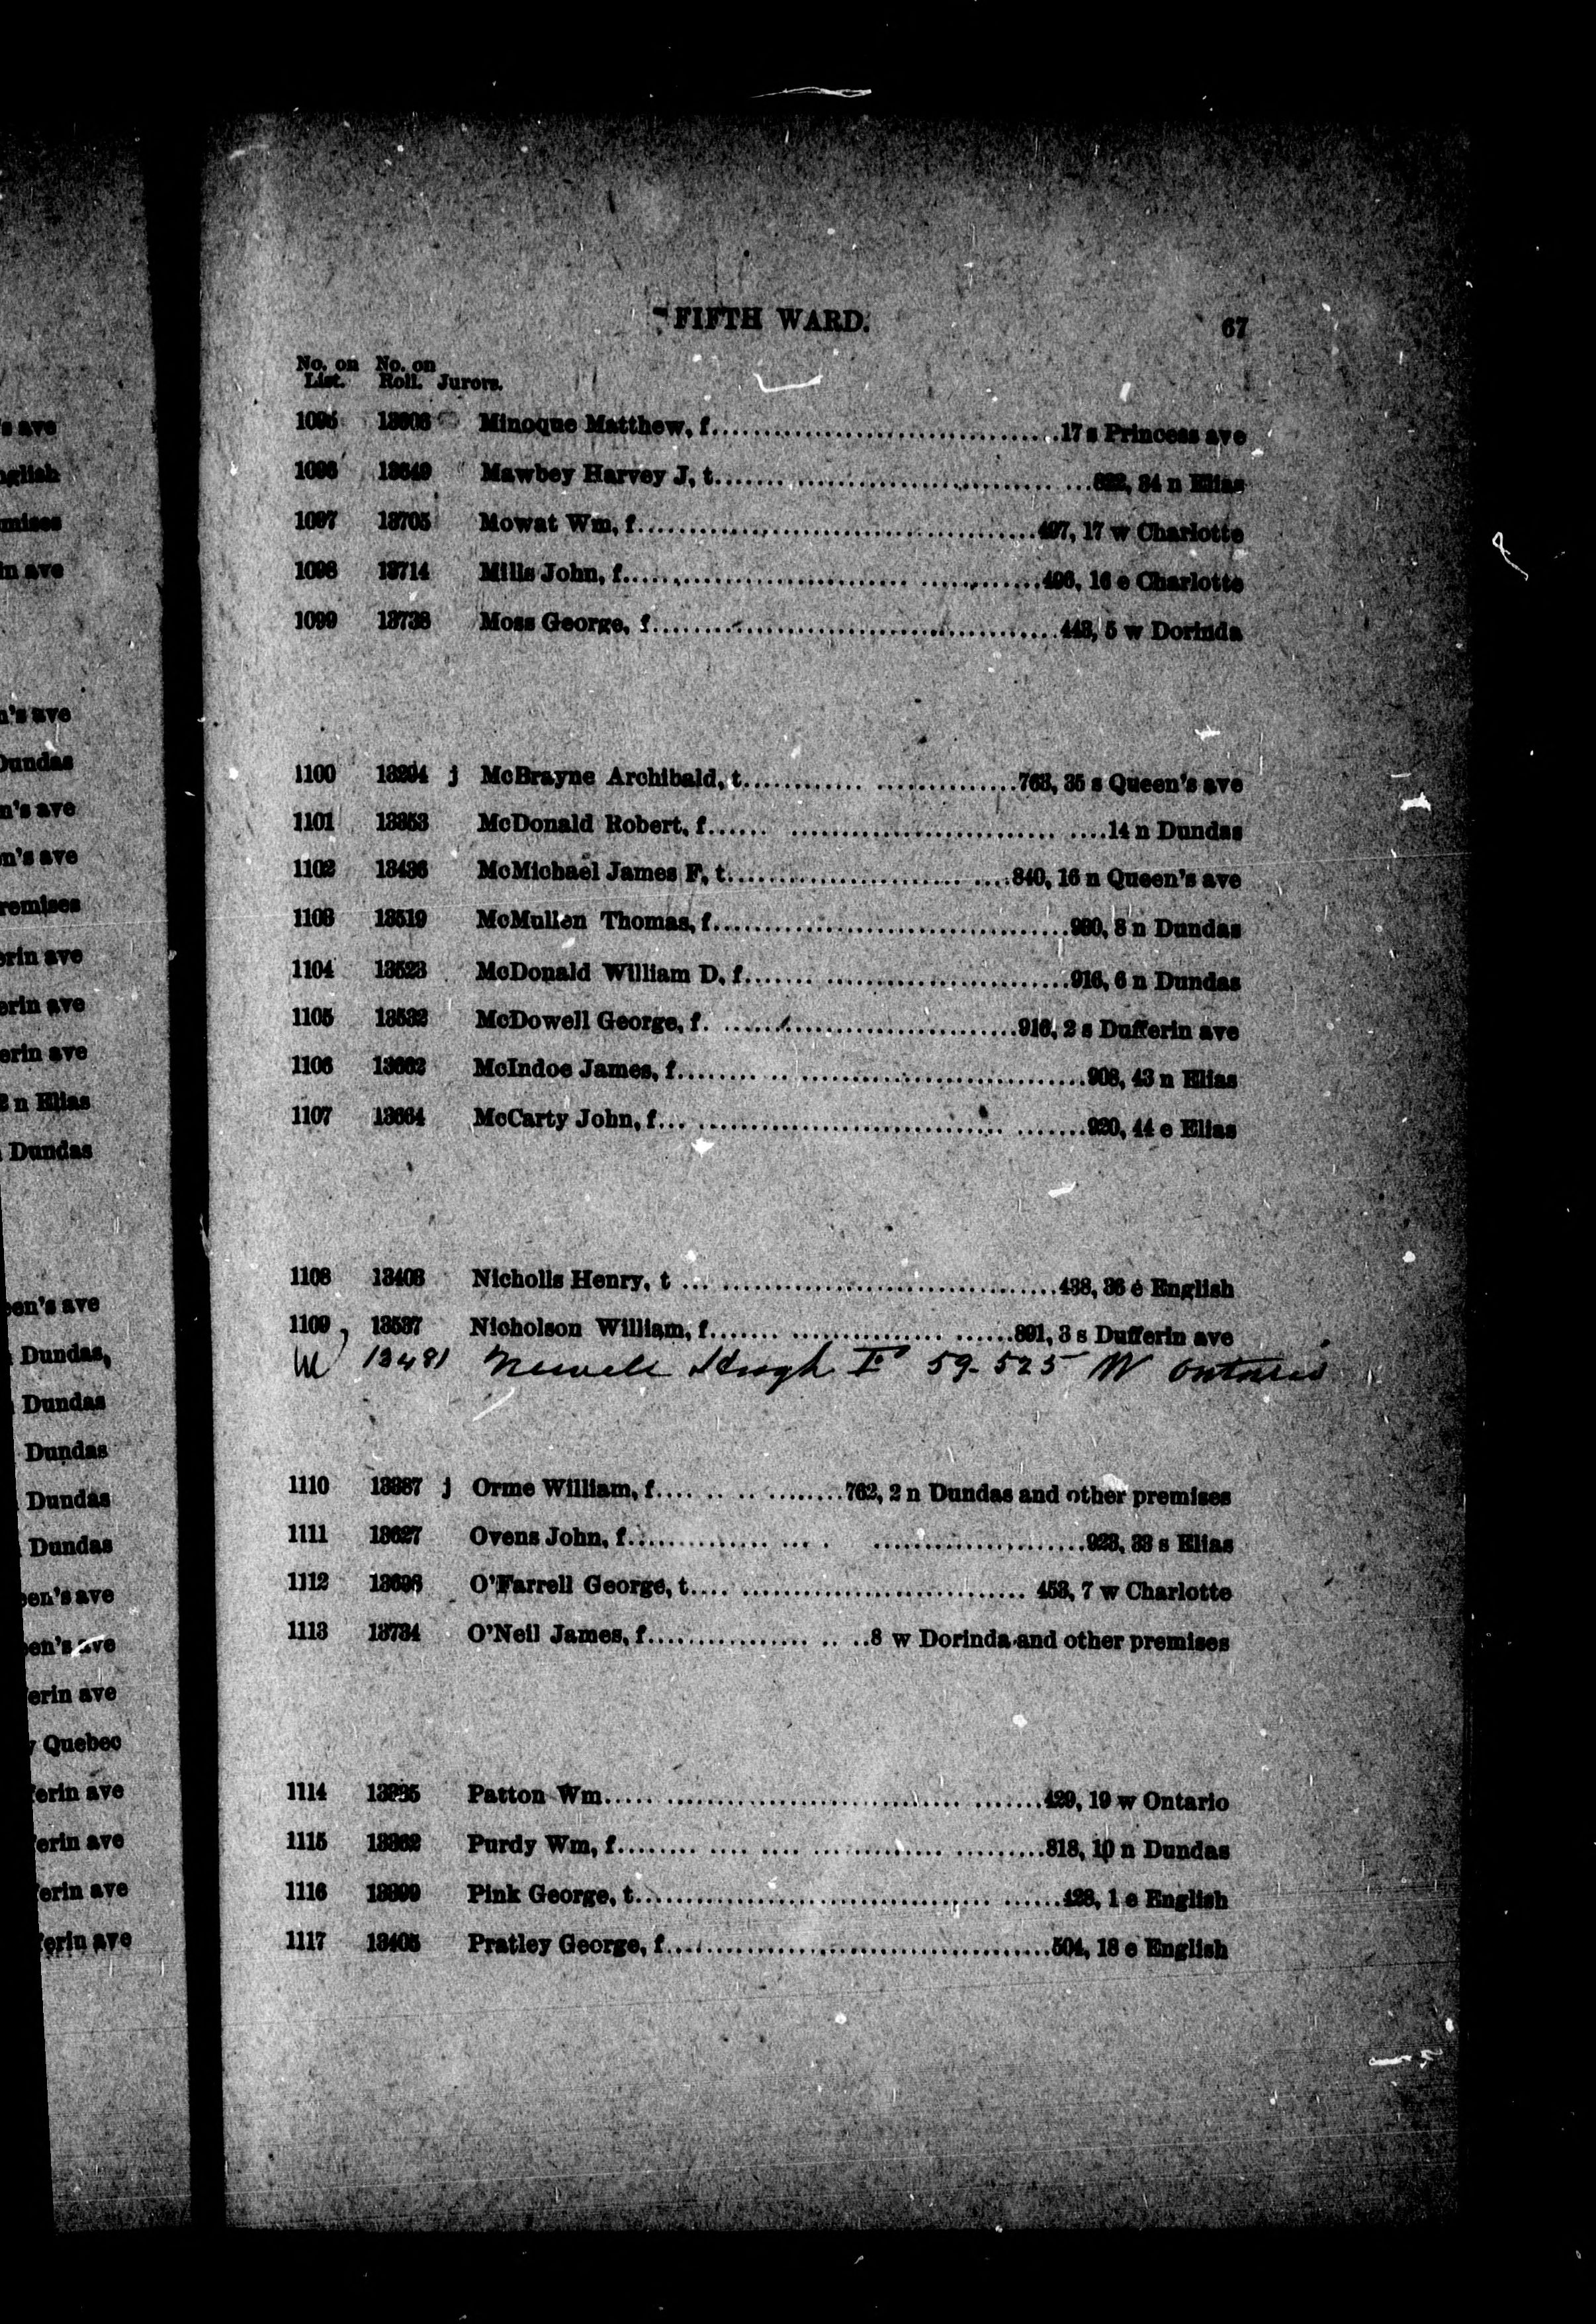 s ave
nglish
mises
in ave
n's ave
Dundas
n's ave
n's ave
remises
erin ave
erin ave
erin ave
n Elias
Dundas
en's ave
Dundas,
Dundas
Dundas
Dundas
Dundas
en's ave
en's ave
erin ave
Quebec
erin ave
erin ave
erin ave
erin ave
FIFTH WARD. 67
No. on No. on
List. Roll. Jurors.
1095 13606 Minoque Matthew, f..................................17 s Princess ave
1096 13649 Mawbey Harvey J, t..................................822, 34 n Elias
1097 13705 Mowat Wm, f..................................497, 17 w Charlotte
1098 13714 Mills John, f..................................496, 16 e Charlotte
1099 13738 Moss George, f..................................443, 5 w Dorinda
1100 13294 j McBrayne Archibald, t..................................763, 35 s Queen's ave
1101 13353 McDonald Robert, f..................................14 n Dundas
1102 13436 McMichael James F, t..................................840, 16 n Queen's ave
1103 13519 McMullen Thomas, f..................................930, 8 n Dundas
1104 13523 McDonald William D, f..................................916, 6 n Dundas
1105 13532 McDowell George, f..................................916, 2 s Dufferin ave
1106 13662 McIndoe James, f..................................908, 43 n Elias
1107 13664 McCarty John, f..................................920, 44 e Elias
1108 13408 Nicholls Henry, t..................................438, 36 e English
1109 13537 Nicholson William, f..................................891, 3 s Dufferin ave
13481 Newell Hugh F 59-525 W Ontario
1110 13387 j Orme William, f....................762, 2 n Dundas and other premises
1111 13627 Ovens John, f..................................923, 33 s Elias
1112 13698 O'Farrell George, t..................................453, 7 w Charlotte
1113 13734 O'Neil James, f....................8 w Dorinda and other premises
1114 Patton Wm..................................429, 19 w Ontario
1115 13362 Purdy Wm, f..................................818, 10 n Dundas
1116 13399 Pink George, t..................................428, 1 e English
1117 13405 Pratley George, f..................................504, 18 e English